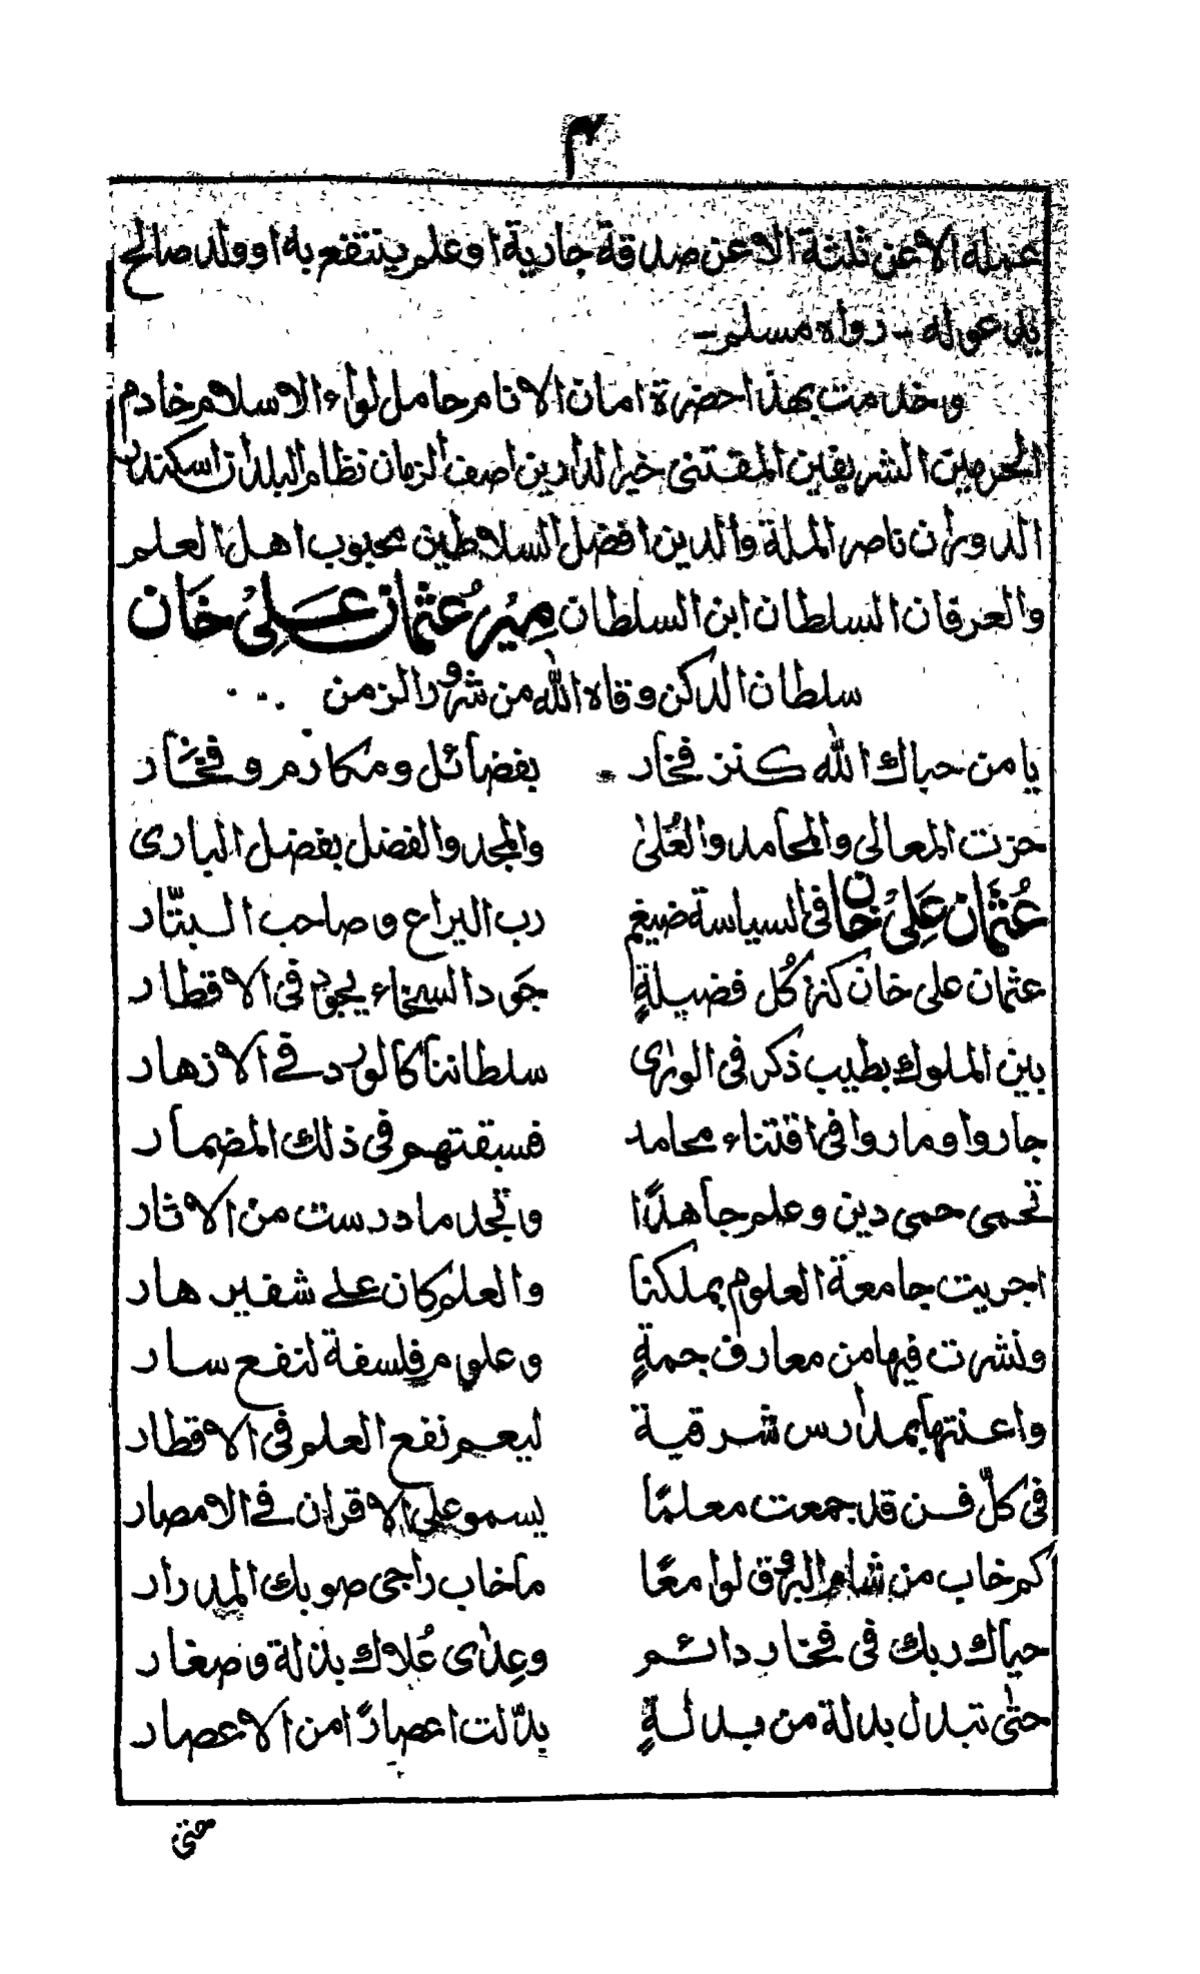 ٣
عمله الا عن ثلثة الا عن صدقة جارية او علم ينتفع به او ولد صالح
يدعو له - رواه مسلم -
وخدمت بهذا حضرة امان الانام حامل لواء الاسلام خادم
الحرمين الشريفين المقتنى خير الدارين اصف الزمان نظام البلدان اسكندر
الدوران ناصر الملة والدين افضل السلاطين محبوب اهل العلم
والعرفان السلطان ابن السلطان مِيْر عُثمان عَلِیْ خَان
سلطان الدكن وقاه الله من شرور الزمن
يا من حباك الله كنز فخار بفضائل ومكارم وفَخَار
حزت المعالى والمحامد والعُلىٰ والمجد والفضل بفضل البارى
عُثمَان عَلِیْ خان فى السياسة ضيغم رب اليراع وصاحب البتّار
عثمان على خان كنز كُل فضيلةٍ جَود السخاء يجود فى الاقطار
بين الملوك بطيب ذكر فى الورٰى سلطاننا كالورد فے الازهار
جاروا وماروا فى اقتناء محامد فسبقتهم فى ذلك المضمار
تحمى حمى دين وعلم جاهدًا وتجد ما درست من الاثار
اجريت جامعة العلوم بملكنا والعلم كان علے شفير هار
ونشرت فيها من معارف جمةٍ وعلوم فلسفة لنفع سار
واعنتها بمدارس شرقية ليعم نفع العلم فى الاقطار
فى كلّ فن قد جمعت معلمًا يسمو على الاقران فے الامصار
كم خاب من شام البروق لوامعًا ما خاب راجى صوبك المدرار
حياك ربك فى فخار دائم وعِدٰى عُلاك بذلة وصغار
حتىٰ تبدل بدلة من بدلةٍ بدّلت اعصارًا من الاعصار
حتىٰ